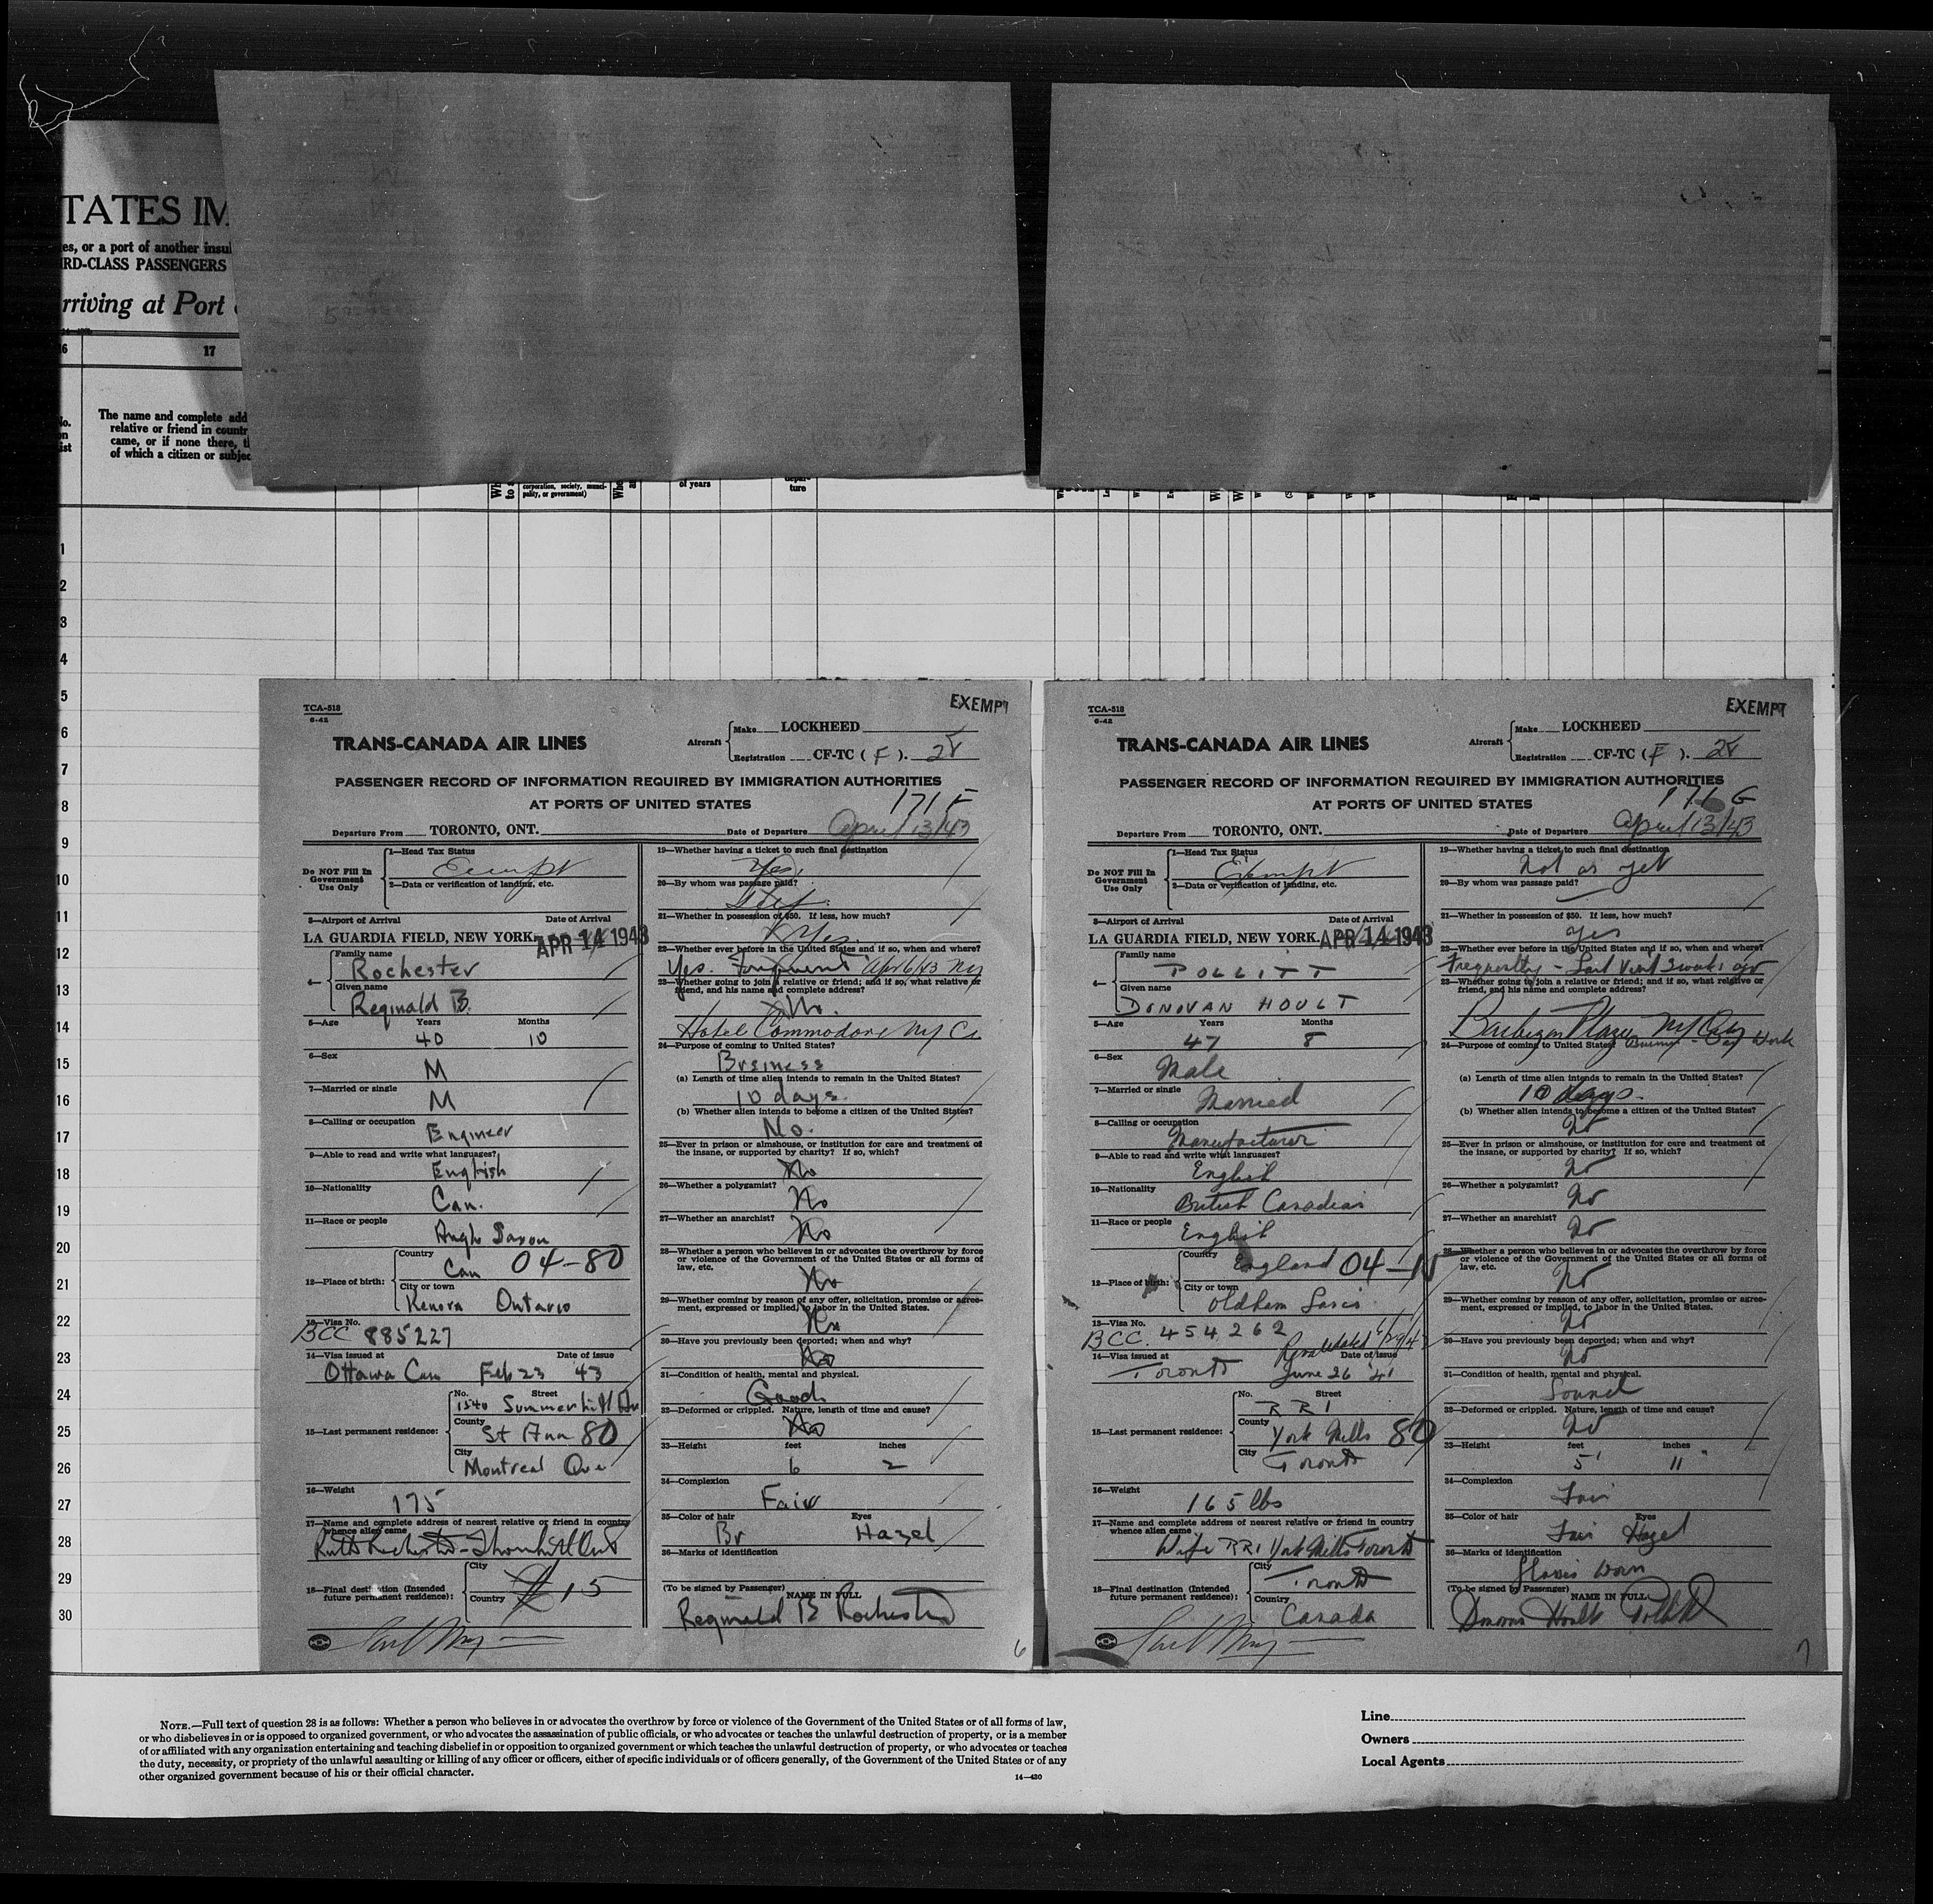 TATES IM
es, or a port of another insul
IRD-CLASS PASSENGERS
rriving at Port
17
The name and complete add
relative or friend in countr
came, or if none there, t
of which a citizen or subjec
corporation, society, munici-
pality, or government)
of years
depar-
ture
1
2
3
4
5
6
7
8
9
10
11
12
13
14
15
16
17
18
19
20
21
22
23
24
25
26
27
28
29
30
TCA-518
6-42
EXEMPT
TRANS-CANADA AIR LINES
Aircraft
Make LOCKHEED
Registration CF-TC (F). 28
PASSENGER RECORD OF INFORMATION REQUIRED BY IMMIGRATION AUTHORITIES
AT PORTS OF UNITED STATES
171 F
Departure From TORONTO, ONT.
Date of Departure April 13/43
Do NOT Fill In
Government
Use Only
1—Head Tax Status
Exempt
2—Data or verification of landing, etc.
3—Airport of Arrival Date of Arrival
LA GUARDIA FIELD, NEW YORK. APR 14 1943
4—
Family name
Rochester
Given name
Reginald B.
5—Age Years Months
40 10
6—Sex
M
7—Married or single
M
8—Calling or occupation
Engineer
9—Able to read and write what languages?
English
10—Nationality
Can.
11—Race or people
Anglo Saxon
12—Place of birth:
Country
Can 04-80
City or town
Kenora Ontario
13—Visa No.
BCC 885227
14—Visa issued at Date of issue
Ottawa Can Feb 23 43
15—Last permanent residence:
No. Street
1540 Summerhill Av
County
St Ann 80
City
Montreal Que
16—Weight
175
17—Name and complete address of nearest relative or friend in country
whence alien came
Ruth Rochester - Thornhill Ont
18—Final destination (Intended
future permanent residence):
City
Country
15
19—Whether having a ticket to such final destination
Yes.
20—By whom was passage paid?
Self.
21—Whether in possession of $50. If less, how much?
Yes.
22—Whether ever before in the United States and if so, when and where?
Yes. Frequent Apr 6/43 NY
23—Whether going to join a relative or friend; and if so, what relative or
friend, and his name and complete address?
No.
Hotel Commodore NY C
24—Purpose of coming to United States?
Business
(a) Length of time alien intends to remain in the United States?
10 days.
(b) Whether alien intends to become a citizen of the United States?
No.
25—Ever in prison or almshouse, or institution for care and treatment of
the insane, or supported by charity? If so, which?
No
26—Whether a polygamist?
No
27—Whether an anarchist?
No
28—Whether a person who believes in or advocates the overthrow by force
or violence of the Government of the United States or all forms of
law, etc.
No
29—Whether coming by reason of any offer, solicitation, promise or agree-
ment, expressed or implied, to labor in the United States.
No
30—Have you previously been deported; when and why?
No
31—Condition of health, mental and physical.
Good
32—Deformed or crippled. Nature, length of time and cause?
No
33—Height feet inches
6 2
34—Complexion
Fair
35—Color of hair Eyes
Br Hazel
36—Marks of identification
(To be signed by Passenger) NAME IN FULL
Reginald B Rochester
6
TCA-518
6-42
EXEMPT
TRANS-CANADA AIR LINES
Aircraft
Make LOCKHEED
Registration CF-TC (F). 28
PASSENGER RECORD OF INFORMATION REQUIRED BY IMMIGRATION AUTHORITIES
AT PORTS OF UNITED STATES
171 G
Departure From TORONTO, ONT.
Date of Departure April 13/43
Do NOT Fill In
Government
Use Only
1—Head Tax Status
Exempt
2—Data or verification of landing, etc.
3—Airport of Arrival Date of Arrival
LA GUARDIA FIELD, NEW YORK. APR 14 1943
4—
Family name
POLLITT
Given name
DONOVAN HOULT
5—Age Years Months
47 8
6—Sex
Male
7—Married or single
Married
8—Calling or occupation
Manufacturer
9—Able to read and write what languages?
English
10—Nationality
British Canadian
11—Race or people
English
12—Place of birth:
Country
England 04-15
City or town
Oldham Lancs
13—Visa No.
BCC. 454262 Revalidated
14—Visa issued at Date of issue
Toronto June 26 '41
15—Last permanent residence:
No. Street
RR1
County
York Mills 80
City
Toronto
16—Weight
165 lbs
17—Name and complete address of nearest relative or friend in country
whence alien came
Wife RR1 York Mills Toronto
18—Final destination (Intended
future permanent residence):
City
Toronto
Country
Canada
19—Whether having a ticket to such final destination
not as yet
20—By whom was passage paid?
21—Whether in possession of $50. If less, how much?
yes
22—Whether ever before in the United States and if so, when and where?
Frequently - Last Visit 3 weeks ago
23—Whether going to join a relative or friend; and if so, what relative or
friend, and his name and complete address?
Barbizon Plaza NY City
24—Purpose of coming to United States? Business - Work
(a) Length of time alien intends to remain in the United States?
10 days.
(b) Whether alien intends to become a citizen of the United States?
no
25—Ever in prison or almshouse, or institution for care and treatment of
the insane, or supported by charity? If so, which?
no
26—Whether a polygamist?
no
27—Whether an anarchist?
no
28—Whether a person who believes in or advocates the overthrow by force
or violence of the Government of the United States or all forms of
law, etc.
no
29—Whether coming by reason of any offer, solicitation, promise or agree-
ment, expressed or implied, to labor in the United States.
no
30—Have you previously been deported; when and why?
no
31—Condition of health, mental and physical.
Sound
32—Deformed or crippled. Nature, length of time and cause?
no
33—Height feet inches
5' 11"
34—Complexion
Fair
35—Color of hair Eyes
Fair Hazel
36—Marks of identification
Glasses worn
(To be signed by Passenger) NAME IN FULL
Donovan Hoult Pollitt
7
NOTE.—Full text of question 28 is as follows: Whether a person who believes in or advocates the overthrow by force or violence of the Government of the United States or of all forms of law,
or who disbelieves in or is opposed to organized government, or who advocates the assassination of public officials, or who advocates or teaches the unlawful destruction of property, or is a member
of or affiliated with any organization entertaining and teaching disbelief in or opposition to organized government or which teaches the unlawful destruction of property, or who advocates or teaches
the duty, necessity, or propriety of the unlawful assaulting or killing of any officer or officers, either of specific individuals or of officers generally, of the Government of the United States or of any
other organized government because of his or their official character.
14—430
Line
Owners
Local Agents